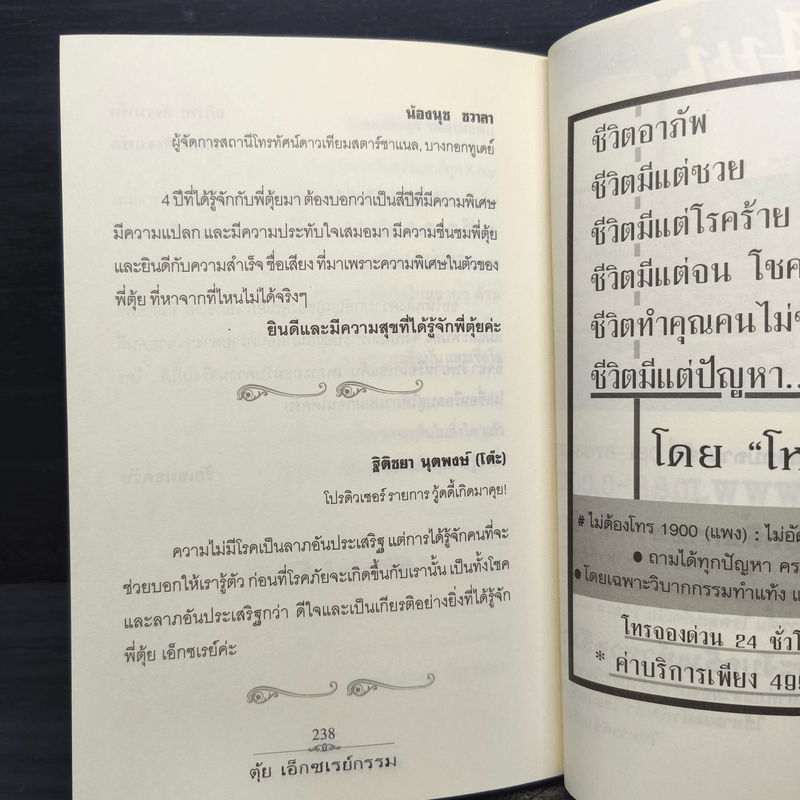 น้องนุช ชวาลา
ผู้จัดการสถานีโทรทัศน์ดาวเทียมสตาร์ชาแนล, บางกอกทูเดย์
4 ปีที่ได้รู้จักกับพี่ตุ้ยมา ต้องบอกว่าเป็นสี่ปีที่มีความพิเศษ
มีความแปลก และมีความประทับใจเสมอมา มีความชื่นชมพี่ตุ้ย
และยินดีกับความสำเร็จ ชื่อเสียง ที่มาเพราะความพิเศษในตัวของ
พี่ตุ้ย ที่หาจากที่ไหนไม่ได้จริงๆ
ยินดีและมีความสุขที่ได้รู้จักพี่ตุ้ยค่ะ
ฐิติชยา นุตพงษ์ (โต๊ะ)
โปรดิวเซอร์ รายการ วู้ดดี้เกิดมาคุย!
ความไม่มีโรคเป็นลาภอันประเสริฐ แต่การได้รู้จักคนที่จะ
ช่วยบอกให้เรารู้ตัว ก่อนที่โรคภัยจะเกิดขึ้นกับเรานั้น เป็นทั้งโชค
และลาภอันประเสริฐกว่า ดีใจและเป็นเกียรติอย่างยิ่งที่ได้รู้จัก
พี่ตุ้ย เอ็กซเรย์ค่ะ
238
ตุ้ย เอ็กซเรย์กรรม
ชีวิตอาภัพ
ชีวิตมีแต่ซวย
ชีวิตมีแต่โรคร้าย
ชีวิตมีแต่จน โชค
ชีวิตทำคุณคนไม่
ชีวิตมีแต่ปัญหา..
โดย “โห
# ไม่ต้องโทร 1900 (แพง) : ไม่อัด
● ถามได้ทุกปัญหา คร
● โดยเฉพาะวิบากกรรมทำแท้ง แ
โทรจองด่วน 24 ชั่วโ
* ค่าบริการเพียง 49